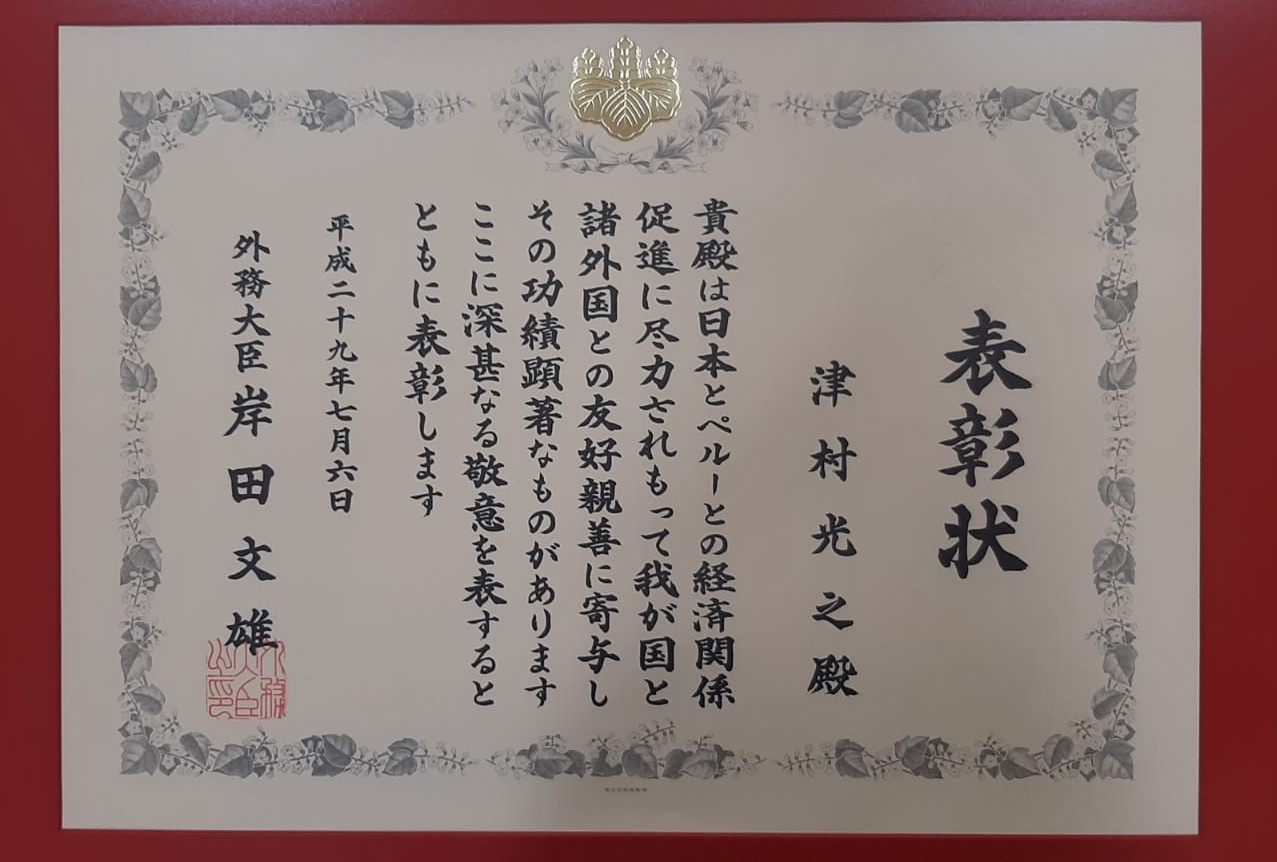 表彰状
津村光之殿
貴殿は日本とペルーとの経済関係
促進に尽力されもって我が国と
諸外国との友好親善に寄与し
その功績顕著なものがあります
ここに深甚なる敬意を表すると
ともに表彰します
平成二十九年七月六日
外務大臣 岸田文雄